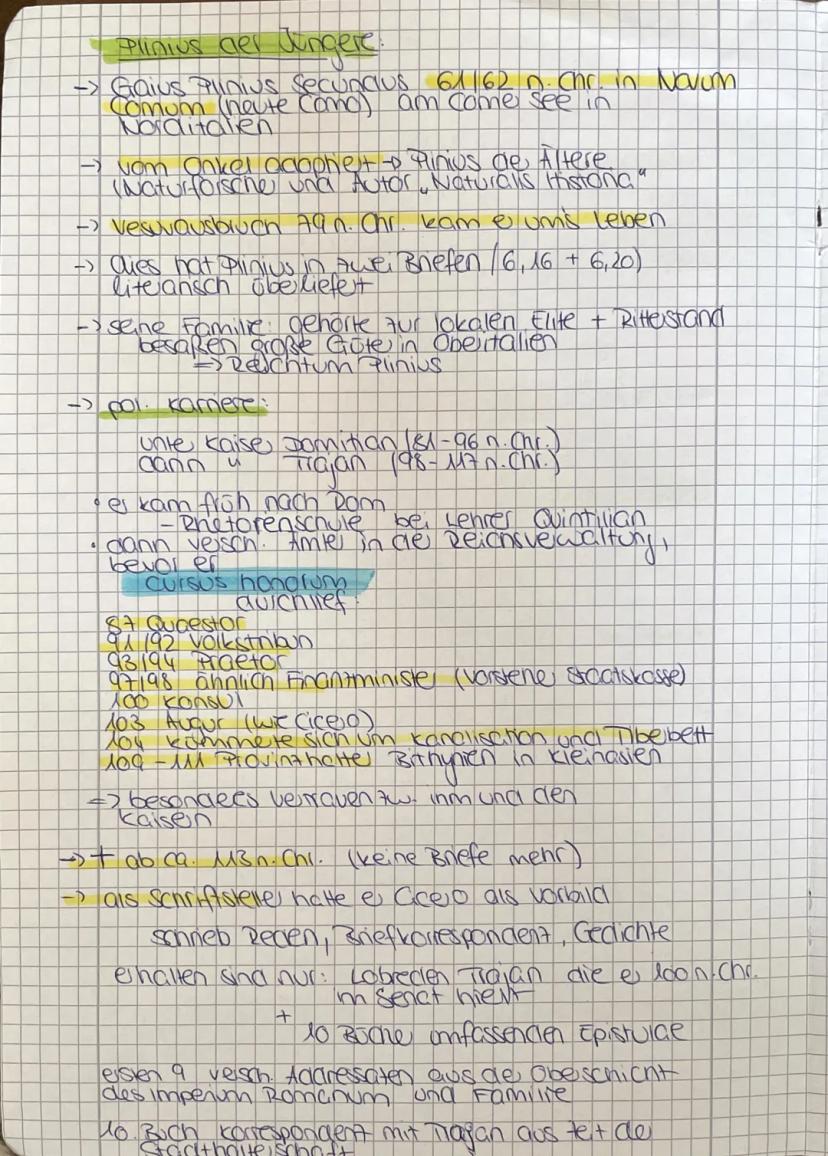 Plinius der Jüngere:
-> Gaius Plinius Secundus 61/62 n. Chr. in Novum
Comum (heute Como) am Come see in
Norditalien
-> vom Onkel adoptiert -> Plinius der Ältere
(Naturforscher und Autor „Naturalis Historia"
-> Vesuvausbruch 79 n. Chr. kam er ums Leben
-> dies hat Plinius in zwei Briefen (6,16 + 6,20)
literarisch überliefert
-> seine Familie: gehörte zur lokalen Elite + Ritterstand
besaßen große Güter in Oberitalien
=> Reichtum Plinius
-> pol. Karriere:
unter Kaiser Domitian (81-96 n. Chr.)
dann u Trajan (98-117 n. Chr.)
• er kam früh nach Rom
- Rhetorenschule bei Lehrer Quintilian
• dann versch. Ämter in der Reichsverwaltung,
bevor er
cursus honorum
durchlief:
87 Quaestor
91/92 Volkstribun
93/94 Praetor
97/98 ähnlich Finanzminister (Vorsteher Staatskasse)
100 Konsul
103 Augur (wie Cicero)
104 kümmerte sich um Kanalisation und Tiberbett
109-111 Provinz hatte Bithynien in Kleinasien
=> besonderes Vertrauen zw. ihm und den
Kaisern
-> † ab ca. 113 n. Chr. (keine Briefe mehr)
-> als Schriftsteller hatte er Cicero als Vorbild
schrieb Reden, Briefkorrespondenz, Gedichte
erhalten sind nur: Lobreden Trajan die er 100 n. Chr.
im Senat hielt
+
10 Bücher umfassenden Epistulae
ersten 9 versch. Adressaten aus der Oberschicht
des Imperium Romanum und Familie
10. Buch Korrespondenz mit Trajan aus Zeit der
Stadthalterschaft